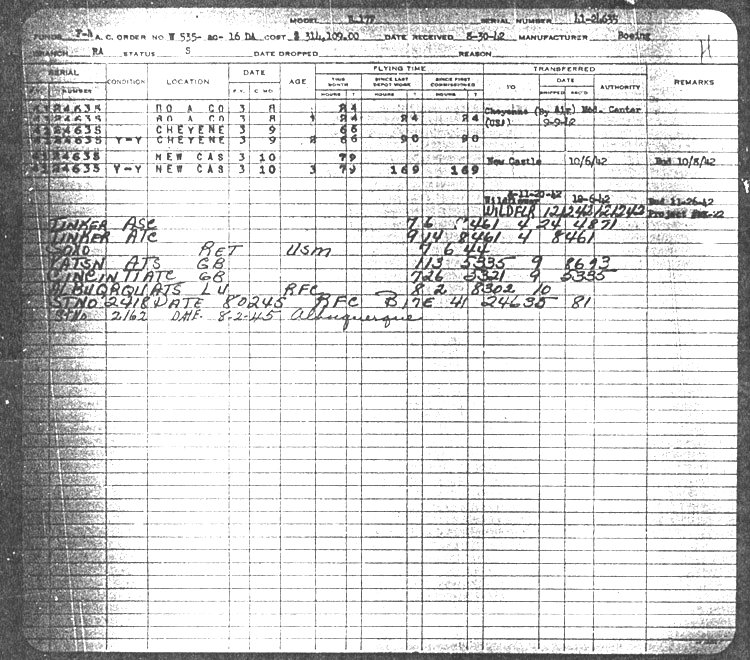 MODEL B-17F SERIAL NUMBER 41-24635
FUNDS F-A A.C. ORDER NO W 535- ac- 16 DA COST $ 314,109.00 DATE RECEIVED 8-30-42 MANUFACTURER Boeing
BRANCH RA STATUS S DATE DROPPED REASON H
SERIAL CONDITION LOCATION DATE AGE FLYING TIME TRANSFERRED REMARKS
F.Y. NUMBER F.Y. C MO THIS MONTH SINCE LAST DEPOT WORK SINCE FIRST COMMISSIONED TO DATE AUTHORITY
HOURS T HOURS T HOURS T SHIPPED REC'D
4124635 BO A CO 3 8 24
4124635 BO A CO 3 8 1 24 24 24 Cheyenne (By Air) Mod. Center
4124635 CHEYENE 3 9 66 (USA) 9-9-42
4124635 Y-Y CHEYENE 3 9 2 66 90 90
4124635 NEW CAS 3 10 79 New Castle 10/6/42 End 10/8/42
4124635 Y-Y NEW CAS 3 10 3 79 169 169
Wildflower 8-11-20-42 12-6-42 End 11-26-42
WILDFLR 121242 121242 Project
TINKER ASC 7 6 8461 4 24 4871
TINKER ATC 9 14 8461 4 8461
RET USM 7 6 44
PATSN ATS GB 113 5335 9 8693
CINCINTIATC GB 726 5321 9 5335
ALBUQRQUATS LU RFC 8 2 8302 10
STNO 2418 DATE 80245 RFC B17E 41 24635 81
STNO 2162 DATE. 8-2-45 Albuquerque